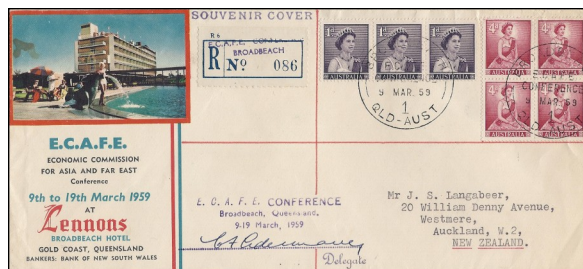 SOUVENIR COVER
R 6
E.C.A.F.E.
BROADBEACH
R No 086
1D 1D 1D
AUSTRALIA AUSTRALIA AUSTRALIA
4D 4D
AUSTRALIA AUSTRALIA
CONFERENCE
9 MAR. 59
1
QLD-AUST
CONFERENCE
9 MAR. 59
E.C.A.F.E.
ECONOMIC COMMISSION
FOR ASIA AND FAR EAST
Conference
9th to 19th March 1959
AT
Lennons
BROADBEACH HOTEL
GOLD COAST, QUEENSLAND
BANKERS: BANK OF NEW SOUTH WALES
E. C. A. F. E. CONFERENCE
Broadbeach, Queensland.
9-19 March, 1959
Delegate
Mr J. S. Langabeer,
20 William Denny Avenue,
Westmere,
Auckland, W.2,
NEW ZEALAND.